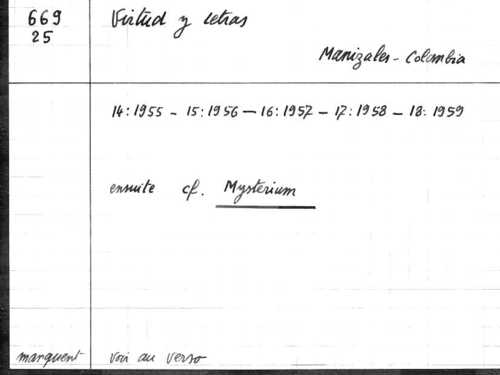 669
25
Virtud y letras
Manizales - Colombia
14: 1955 - 15: 1956 - 16: 1957 - 17: 1958 - 18: 1959
ensuite cf. Mysterium
manquent voir au verso